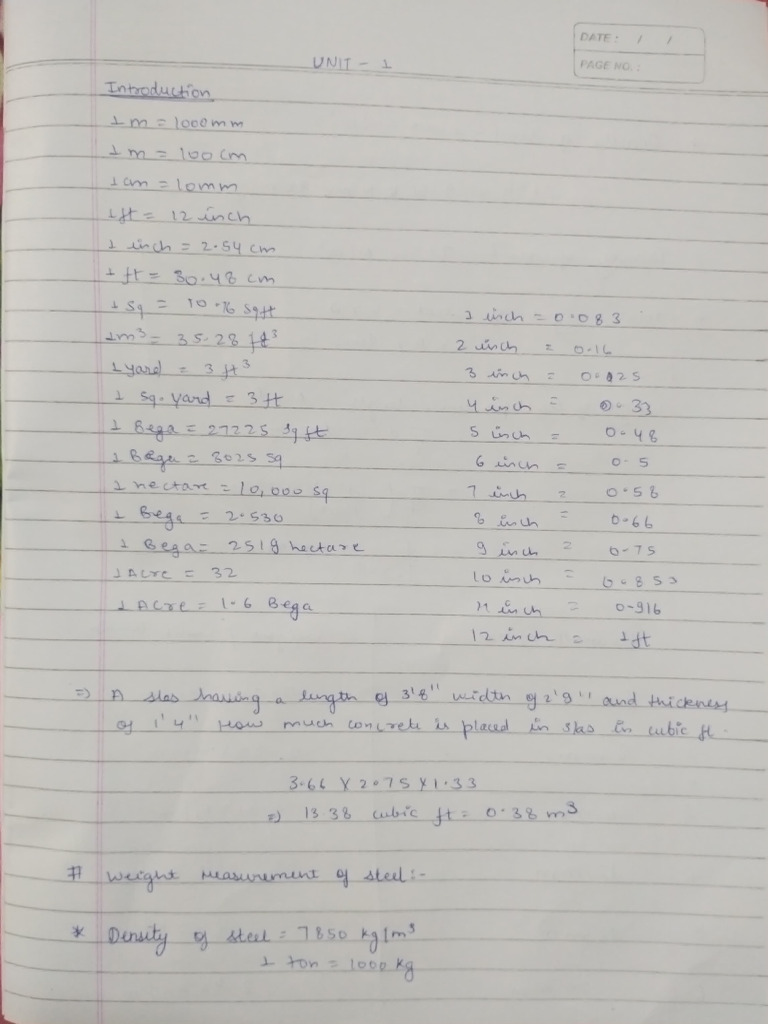 DATE: / /
PAGE NO.:
UNIT - 1
Introduction
1 m = 1000mm
1 m = 100 cm
1 cm = 10mm
1 ft = 12 inch
1 inch = 2.54 cm
1 ft = 30.48 cm
1 sq = 10.76 sqft
1m³ = 35.28 ft³
1 yard = 3 ft³
1 sq. yard = 3 ft
1 Bega = 27225 sq ft
1 Bega = 3025 sq
1 hectare = 10,000 sq
1 Bega = 2.530
1 Bega = 2519 hectare
1 Acre = 32
1 Acre = 1.6 Bega
1 inch = 0.083
2 inch = 0.16
3 inch = 0.025
4 inch = 0.33
5 inch = 0.48
6 inch = 0.5
7 inch = 0.58
8 inch = 0.66
9 inch = 0.75
10 inch = 0.853
11 inch = 0.916
12 inch = 1ft
=) A slab having a length of 3'8" width of 2'9" and thickness
of 1'4" How much concrete is placed in slab in cubic ft.
3.66 X 2.75 X 1.33
=) 13 38 cubic ft = 0.38 m³
# Weight Measurement of steel:-
* Density of steel = 7850 kg/m³
1 ton = 1000 kg